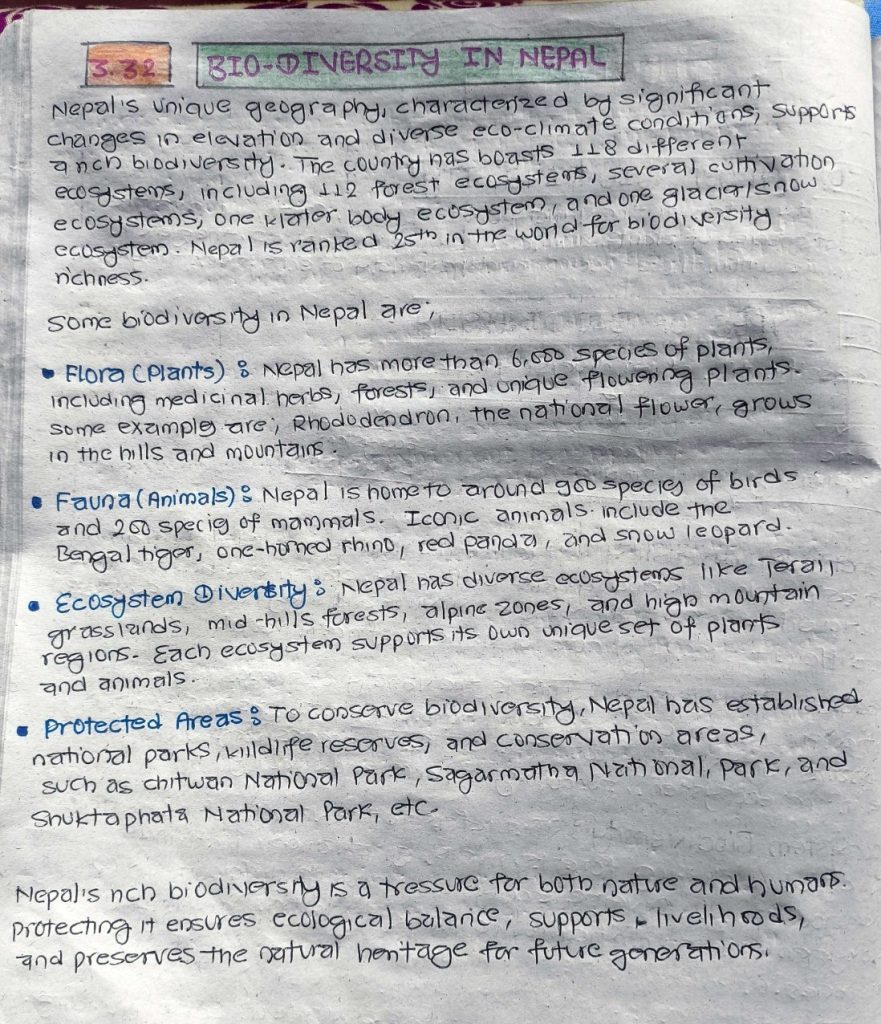 3.32 BIO-DIVERSITY IN NEPAL
Nepal's unique geography, characterized by significant
changes in elevation and diverse eco-climate conditions, supports
a rich biodiversity. The country has boasts 118 different
ecosystems, including 112 forest ecosystems, several cultivation
ecosystems, one water body ecosystem, and one glacier/snow
ecosystem. Nepal is ranked 25th in the world for biodiversity
richness.
Some biodiversity in Nepal are;
• Flora (Plants) : Nepal has more than 6,000 species of plants,
including medicinal herbs, forests, and unique flowering plants.
some examples are; Rhododendron, the national flower, grows
in the hills and mountains.
• Fauna (Animals) : Nepal is home to around 900 species of birds
and 200 species of mammals. Iconic animals include the
Bengal tiger, one-horned rhino, red panda, and snow leopard.
• Ecosystem Diversity : Nepal has diverse ecosystems like Terai
grasslands, mid-hills forests, alpine zones, and high mountain
regions. Each ecosystem supports its own unique set of plants
and animals.
• Protected Areas : To conserve biodiversity, Nepal has established
national parks, wildlife reserves, and conservation areas,
such as chitwan National Park, Sagarmatha National, Park, and
Shuktaphata National Park, etc.
Nepal's rich biodiversity is a tressure for both nature and humans.
Protecting it ensures ecological balance, supports livelihoods,
and preserves the natural heritage for future generations.